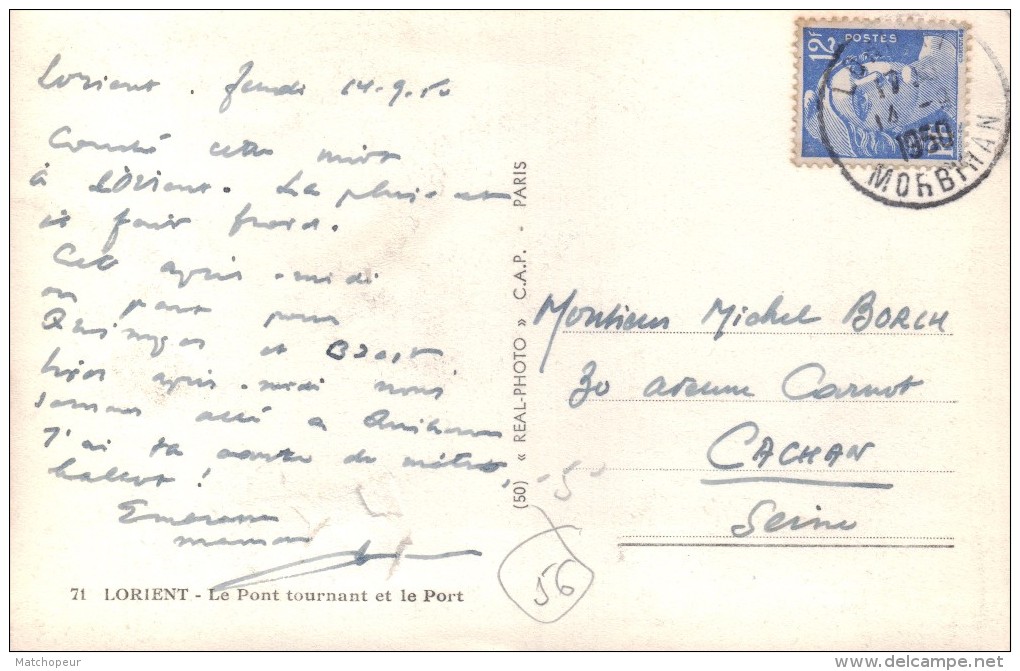 Lorient. Jeudi 14-9-50
Couché cette nuit
à LORient. La pluie et
il fait froid.
Cet après-midi
on part pour
Quimper et BREST
hier après-midi nous
sommes allé a Quiberon
J'ai ta carte de métro,
ballot !
Embrasse
maman
71 LORIENT - Le Pont tournant et le Port
(50) « REAL-PHOTO » C.A.P. - PARIS
POSTES
12F
14
1950
MORBIHAN
Monsieur Michel BORCH
30 avenue Carnot
CACHAN
Seine
56
Matchopeur
www.delcampe.net